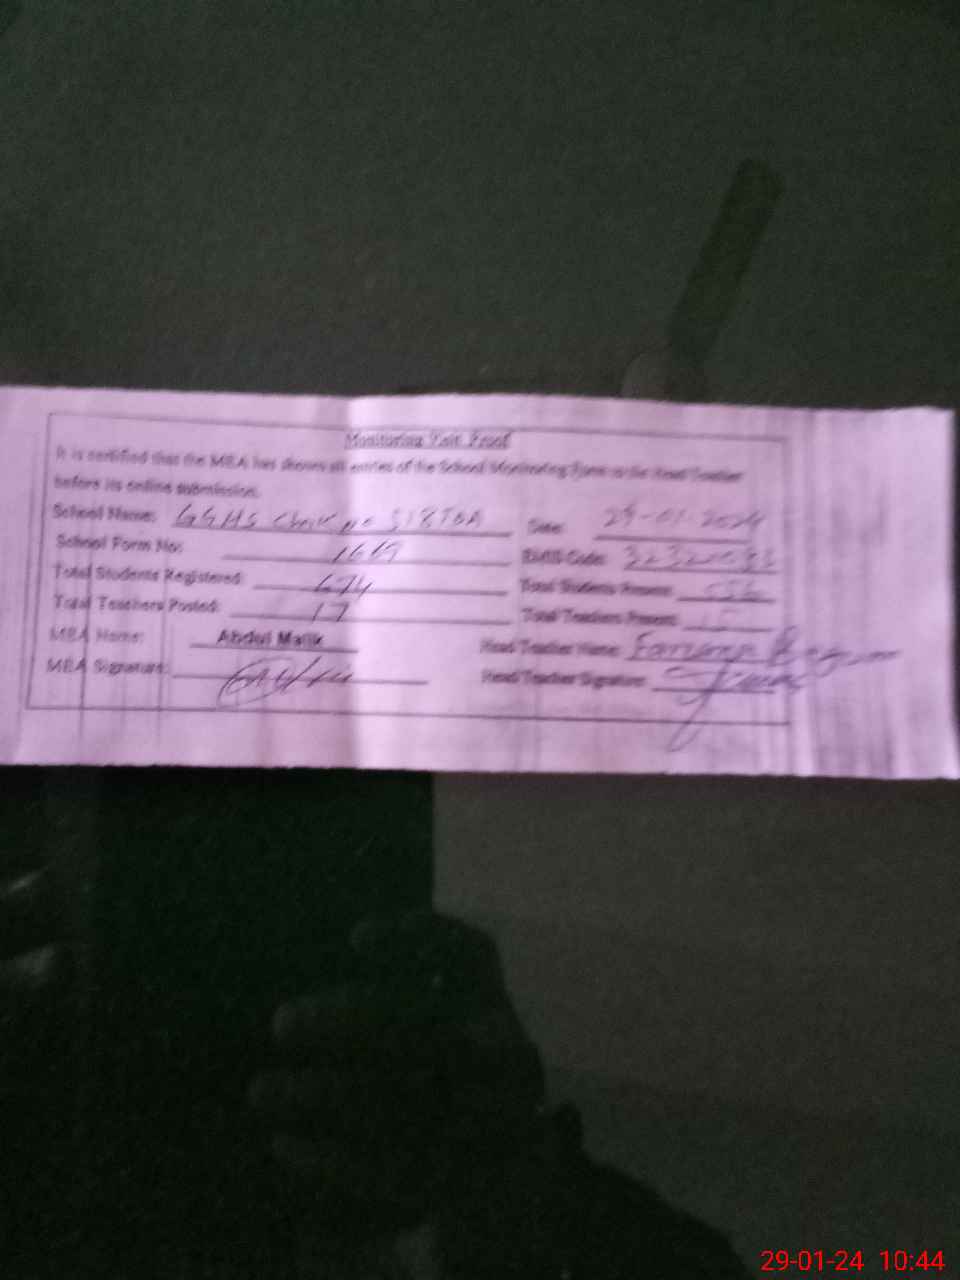 Monitoring Visit Proof
It is certified that the MEA has shown all entries of the School Monitoring Form to the Head Teacher
before its online submission.
School Name: GGHS Chak no 518TDA Date: 29-01-2024
School Form No: 1669 EMIS Code:
Total Students Registered: 674 Total Students Present:
Total Teachers Posted: 17 Total Teachers Present: 15
MEA Name: Abdul Malik Head Teacher Name:
MEA Signature: Head Teacher Signature:
29-01-24 10:44